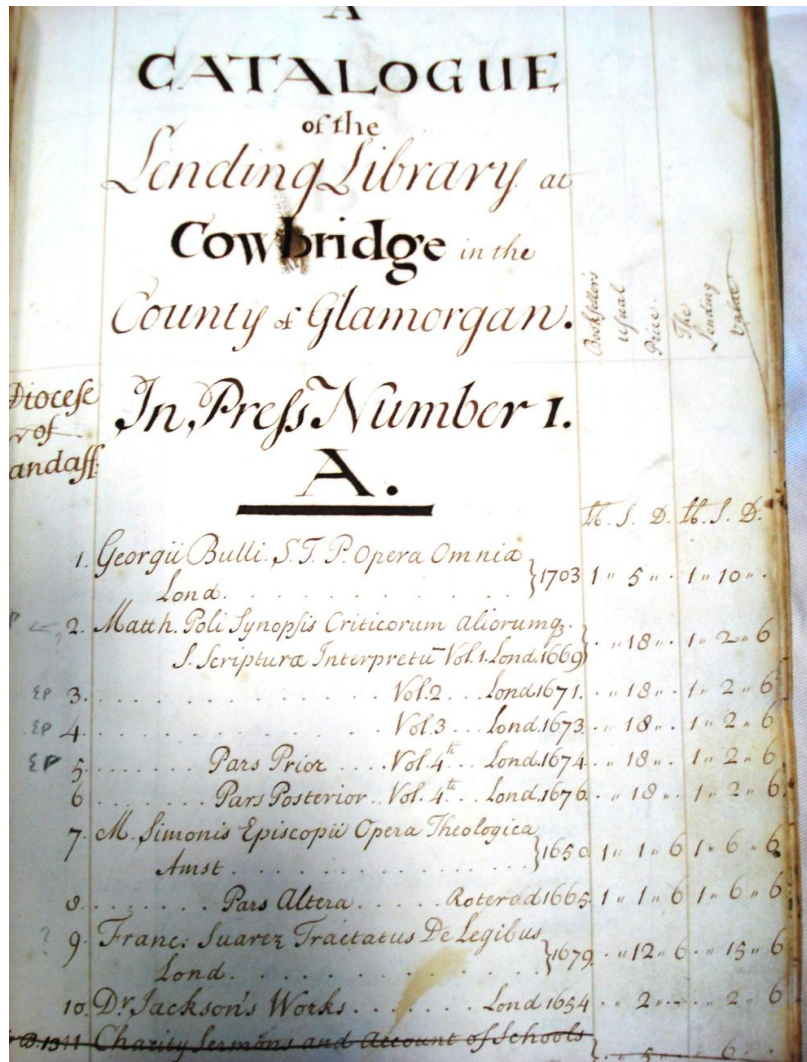 A
CATALOGUE
of the
Lending Library at
Cowbridge in the
County of Glamorgan.
Booksellers usual Price.
The Lending Value
Diocese
of
andaff.
In Press Number 1.
A.
lt. S. D. lt. S. D.
1. Georgii Bulli. S. T. P. Opera Omnia
Lond. . . . . . . . . . . . . } 1703 1 " 5 " . 1 " 10 " .
2. Matth. Poli Synopsis Criticorum aliorumq.
S. Scripturæ Interpretū Vol. 1. Lond. 1669 } . " 18 " . 1 " 2 " 6
EP 3. . . . . . . . . . . . Vol. 2 . . . Lond 1671. . " 18 " . 1 " 2 " 6
EP 4 . . . . . . . . . . . . Vol. 3 . . . Lond. 1673. . " 18 " . 1 " 2 " 6
EP 5. . . . . . . Pars Prior . . . . Vol. 4th . . Lond. 1674. . " 18 " . 1 " 2 " 6
6 . . . . . . . Pars Posterior . . Vol. 4th . . Lond. 1676. . " 18 " . 1 " 2 " 6
7. M. Simonis Episcopii Opera Theologica
Amst . . . . . . . . . . . . . } 1650. 1 " 1 " 6 1 " 6 " 6
8. . . . . . . . Pars Altera . . . . . . Roterad 1665. 1 " 1 " 6 1 " 6 " 6
? 9. Franc: Suarez Tractatus De Legibus
Lond. . . . . . . . . . . . . . } 1679. . " 12 " 6 . " 15 " 6
10. Dr. Jackson's Works . . . . . . . Lond 1654 . " 2 " . . " 2 " 6
11 Charity Sermons and Account of Schools } . " 5 " . " 6 " .